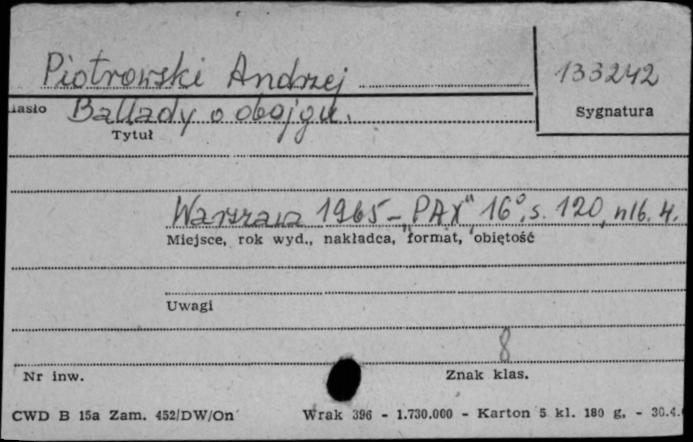 Piotrowski Andrzej
133242
Hasło
Ballady o obojgu.
Sygnatura
Tytuł
Warszawa 1965 - "PAX" 16°, s. 120, nlb. 4.
Miejsce, rok wyd., nakładca, format, objętość
Uwagi
8
Nr inw.
Znak klas.
CWD B 15a Zam. 452/DW/On Wrak 396 - 1.730.000 - Karton 5 kl. 180 g. - 30.4.